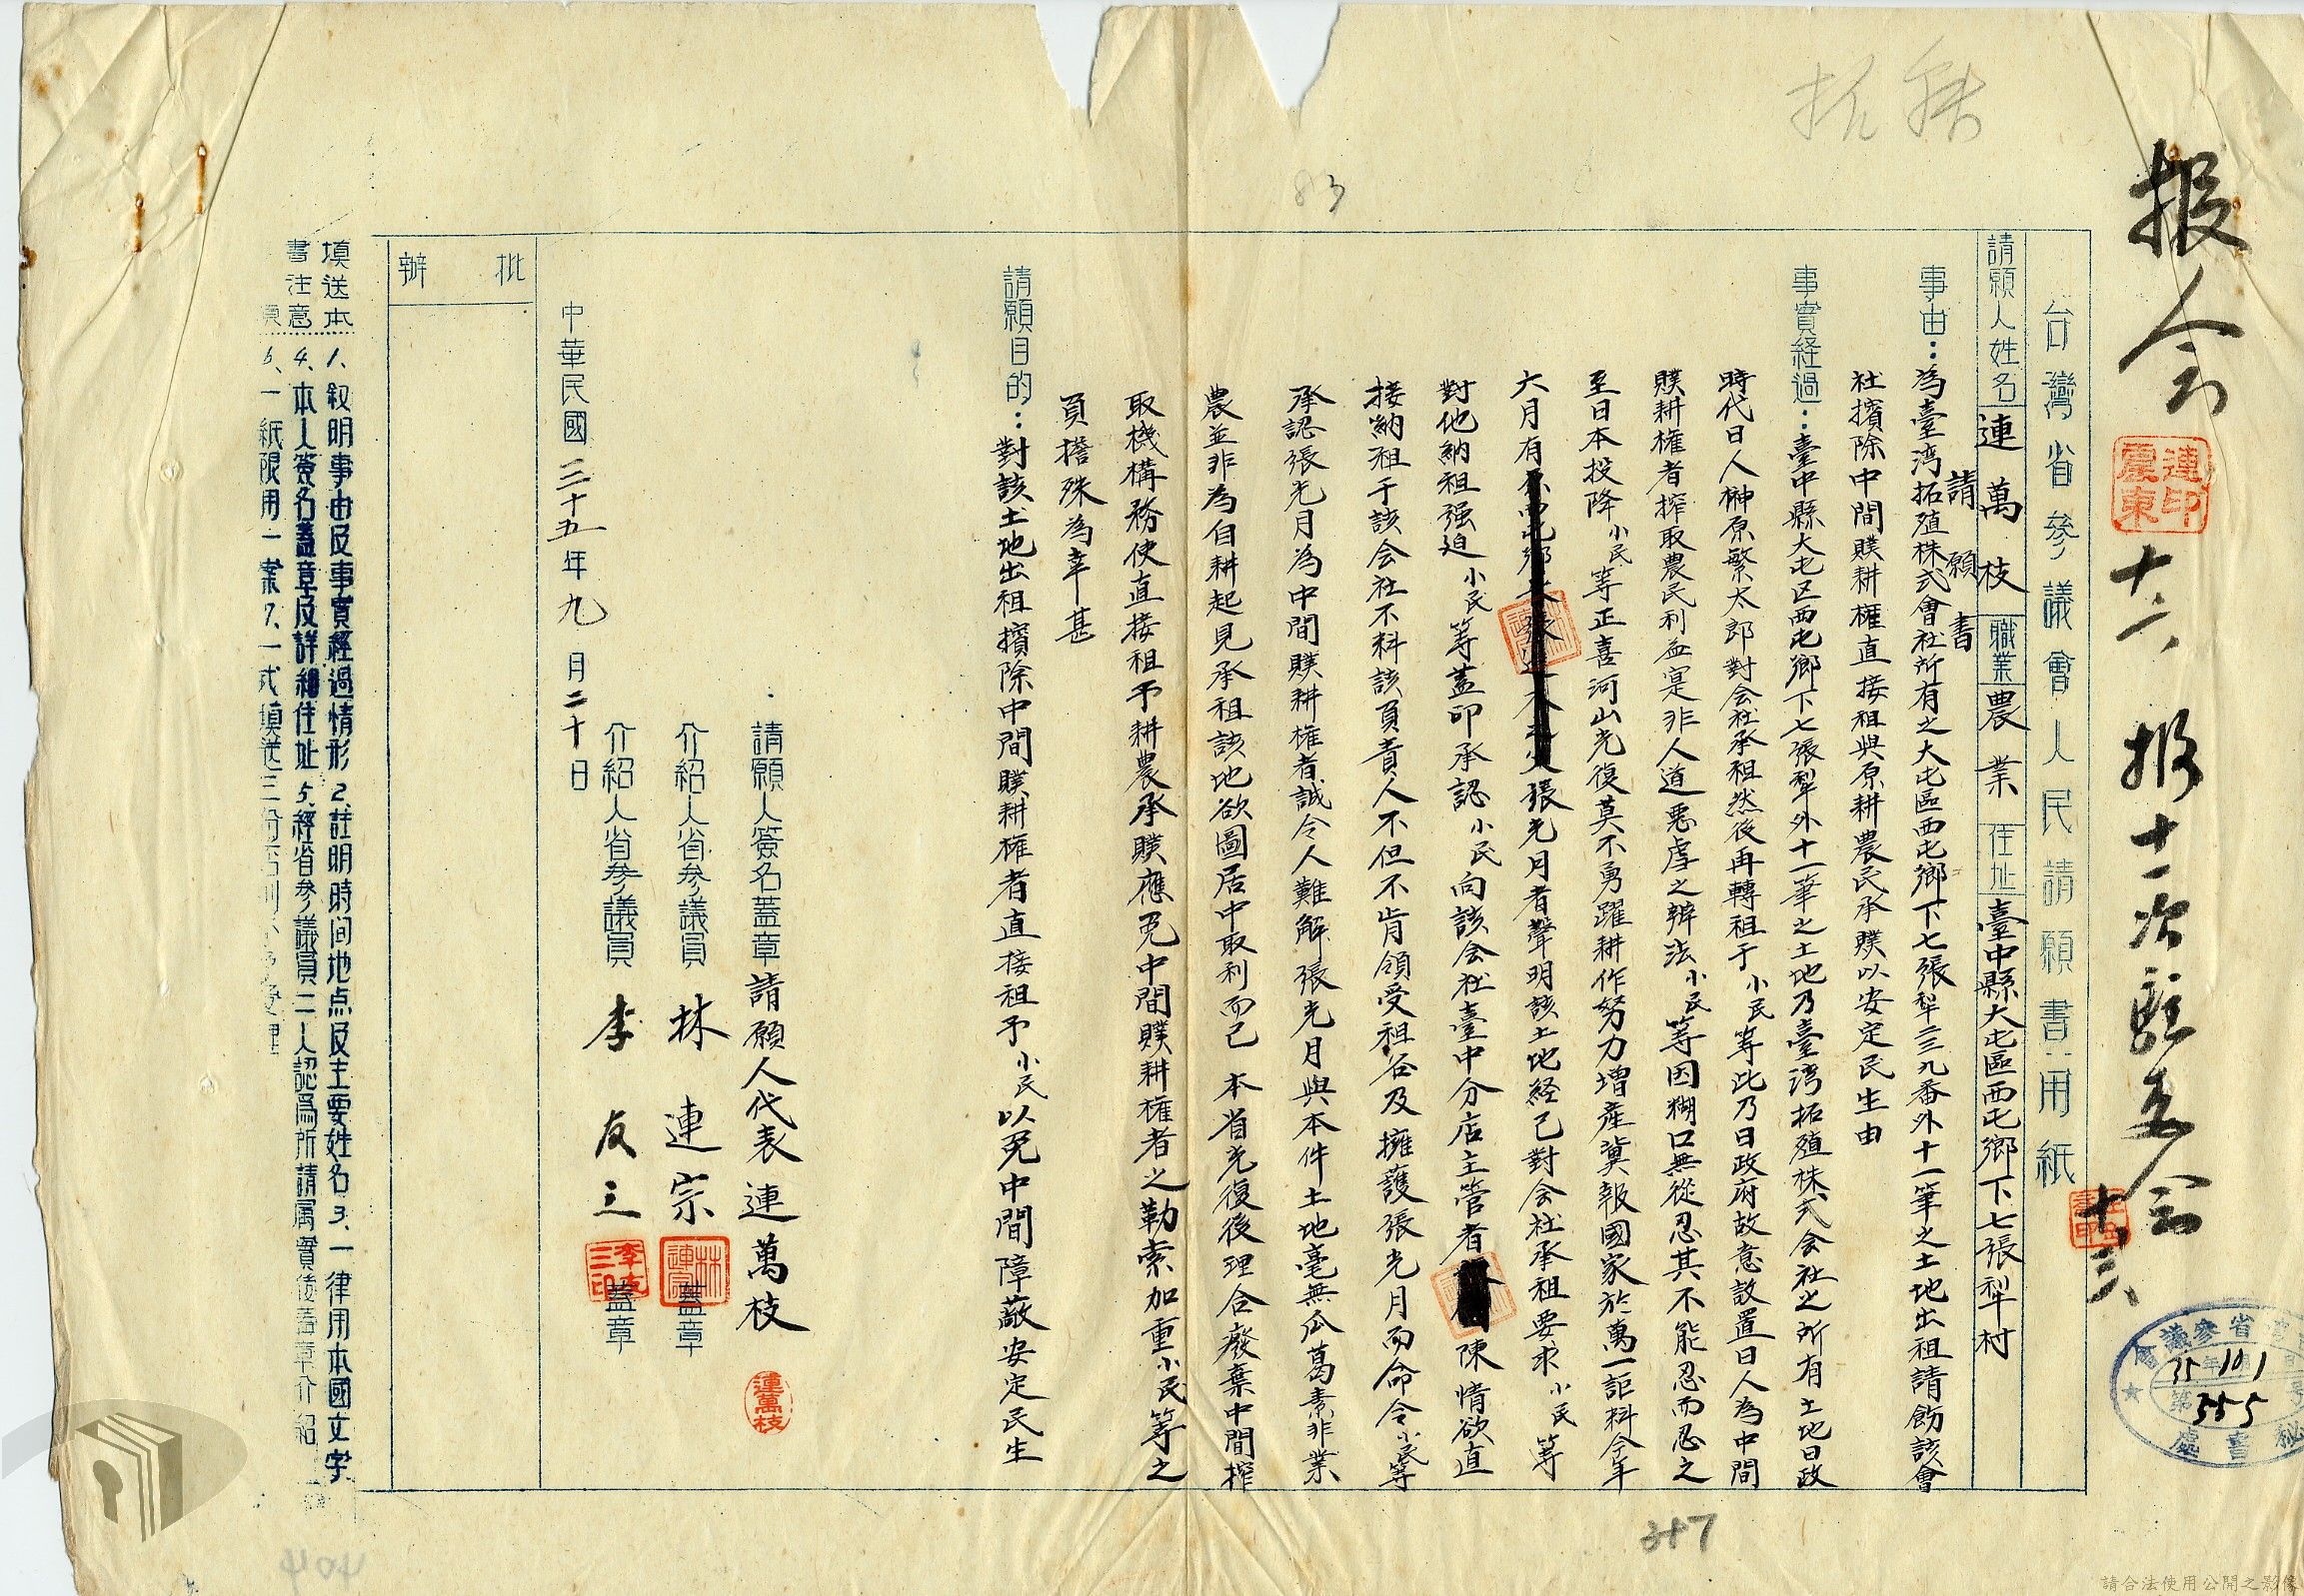 报会
連震東印
十六
報十一次駐委会
十、三、
35 10 1
555
台灣省參議會人民請願書用紙
請願人姓名 連萬枝 職業 農業 住址 臺中縣大屯區西屯鄉下七張犁村
請願書
事由：為臺湾拓殖株式會社所有之大屯區西屯鄉下七張犁三三九番外十一筆之土地出租請飭該會
社擯除中間贌耕權直接租與原耕農民承贌以安定民生由
事實経過：臺中縣大屯区西屯鄉下七張犁外十一筆之土地乃臺湾拓殖株式会社之所有土地日政
時代日人榊原繁太郎對会社承租然後再轉租于小民等此乃日政府故意設置日人為中間
贌耕權者搾取農民利益寔非人道惡虐之辦法小民等因糊口無從忍其不能忍而忍之
至日本投降小民等正喜河山光復莫不勇躍耕作努力增産冀報國家於萬一詎料今年
六月有張光月者聲明該土地経已對会社承租要求小民等
對他納租强迫小民等蓋印承認小民向該会社臺中分店主管者陳情欲直
接納租于該会社不料該負責人不但不肯領受租谷及擁護張光月而命令小民等
承認張光月為中間贌耕權者誠令人難解張光月與本件土地毫無瓜葛素非業
農並非為自耕起見承租該地欲圖居中取利而已 本省光復後理合廢棄中間搾
取機構務使直接租予耕農承贌應免中間贌耕權者之勒索加重小民等之
負擔殊為幸甚
請願目的：對該土地出租擯除中間贌耕權者直接租予小民以免中間障蔽安定民生
請願人簽名蓋章 請願人代表 連萬枝
連萬枝
介紹人省參議員 林連宗 蓋章
介紹人省參議員 李友三 蓋章
中華民國三十五年九月二十日
批辦
填送本書注意
1、叙明事由及事實經過情形 2、註明時间地点及主要姓名 3、一律用本國文字
4、本人簽名蓋章及詳細住址 5、經省參議員二人認爲所請属實後蓋章介紹
6、一紙限用一案 7、一式填送三份
83
247
404
請合法使用公開之影像